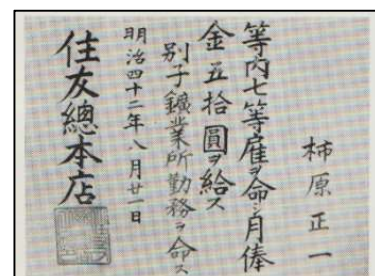 柿原正一
等内七等雇ヲ命シ月俸
金五拾圓ヲ給ス
別子鑛業所勤務ヲ命ス
明治四十二年八月廿一日
住友總本店